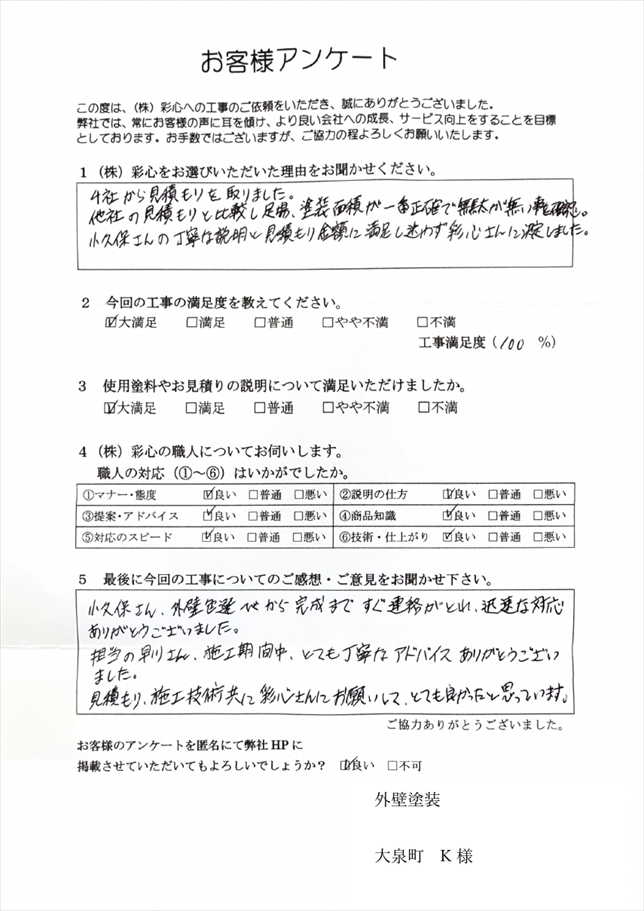 お客様アンケート
この度は、(株)彩心への工事のご依頼をいただき、誠にありがとうございました。
弊社では、常にお客様の声に耳を傾け、より良い会社への成長、サービス向上をすることを目標
としております。お手数ではございますが、ご協力の程よろしくお願いいたします。
1(株)彩心をお選びいただいた理由をお聞かせください。
4社から見積もりを取りました。
他社の見積もりと比較し足場、塗装面積が一番正確で無駄が無い事を確認。
小久保さんの丁寧な説明と見積もり金額に満足し迷わず彩心さんに決定しました。
2 今回の工事の満足度を教えてください。
☑大満足 □満足 □普通 □やや不満 □不満
工事満足度(100 %)
3 使用塗料やお見積りの説明について満足いただけましたか。
☑大満足 □満足 □普通 □やや不満 □不満
4(株)彩心の職人についてお伺いします。
職人の対応(①~⑥)はいかがでしたか。
①マナー・態度 ☑良い □普通 □悪い ②説明の仕方 ☑良い □普通 □悪い
③提案・アドバイス ☑良い □普通 □悪い ④商品知識 ☑良い □普通 □悪い
⑤対応のスピード ☑良い □普通 □悪い ⑥技術・仕上がり ☑良い □普通 □悪い
5 最後に今回の工事についてのご感想・ご意見をお聞かせ下さい。
小久保さん、外壁色選べから完成まですぐ連絡がとれ、迅速な対応
ありがとうございました。
担当の早川さん、施工期間中、とても丁寧なアドバイスありがとうござい
ました。
見積もり、施工技術共に彩心さんにお願いして、とても良かったと思っています。
ご協力ありがとうございました。
お客様のアンケートを匿名にて弊社HPに
掲載させていただいてもよろしいでしょうか? ☑良い □不可
外壁塗装
大泉町 K様